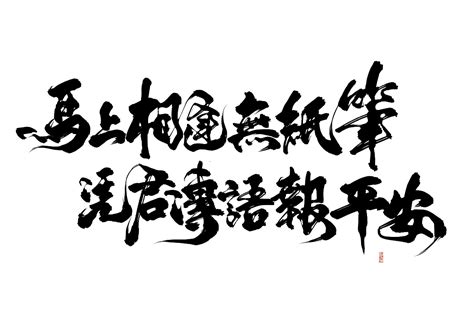 馬上相逢無紙筆
憑君傳語報平安